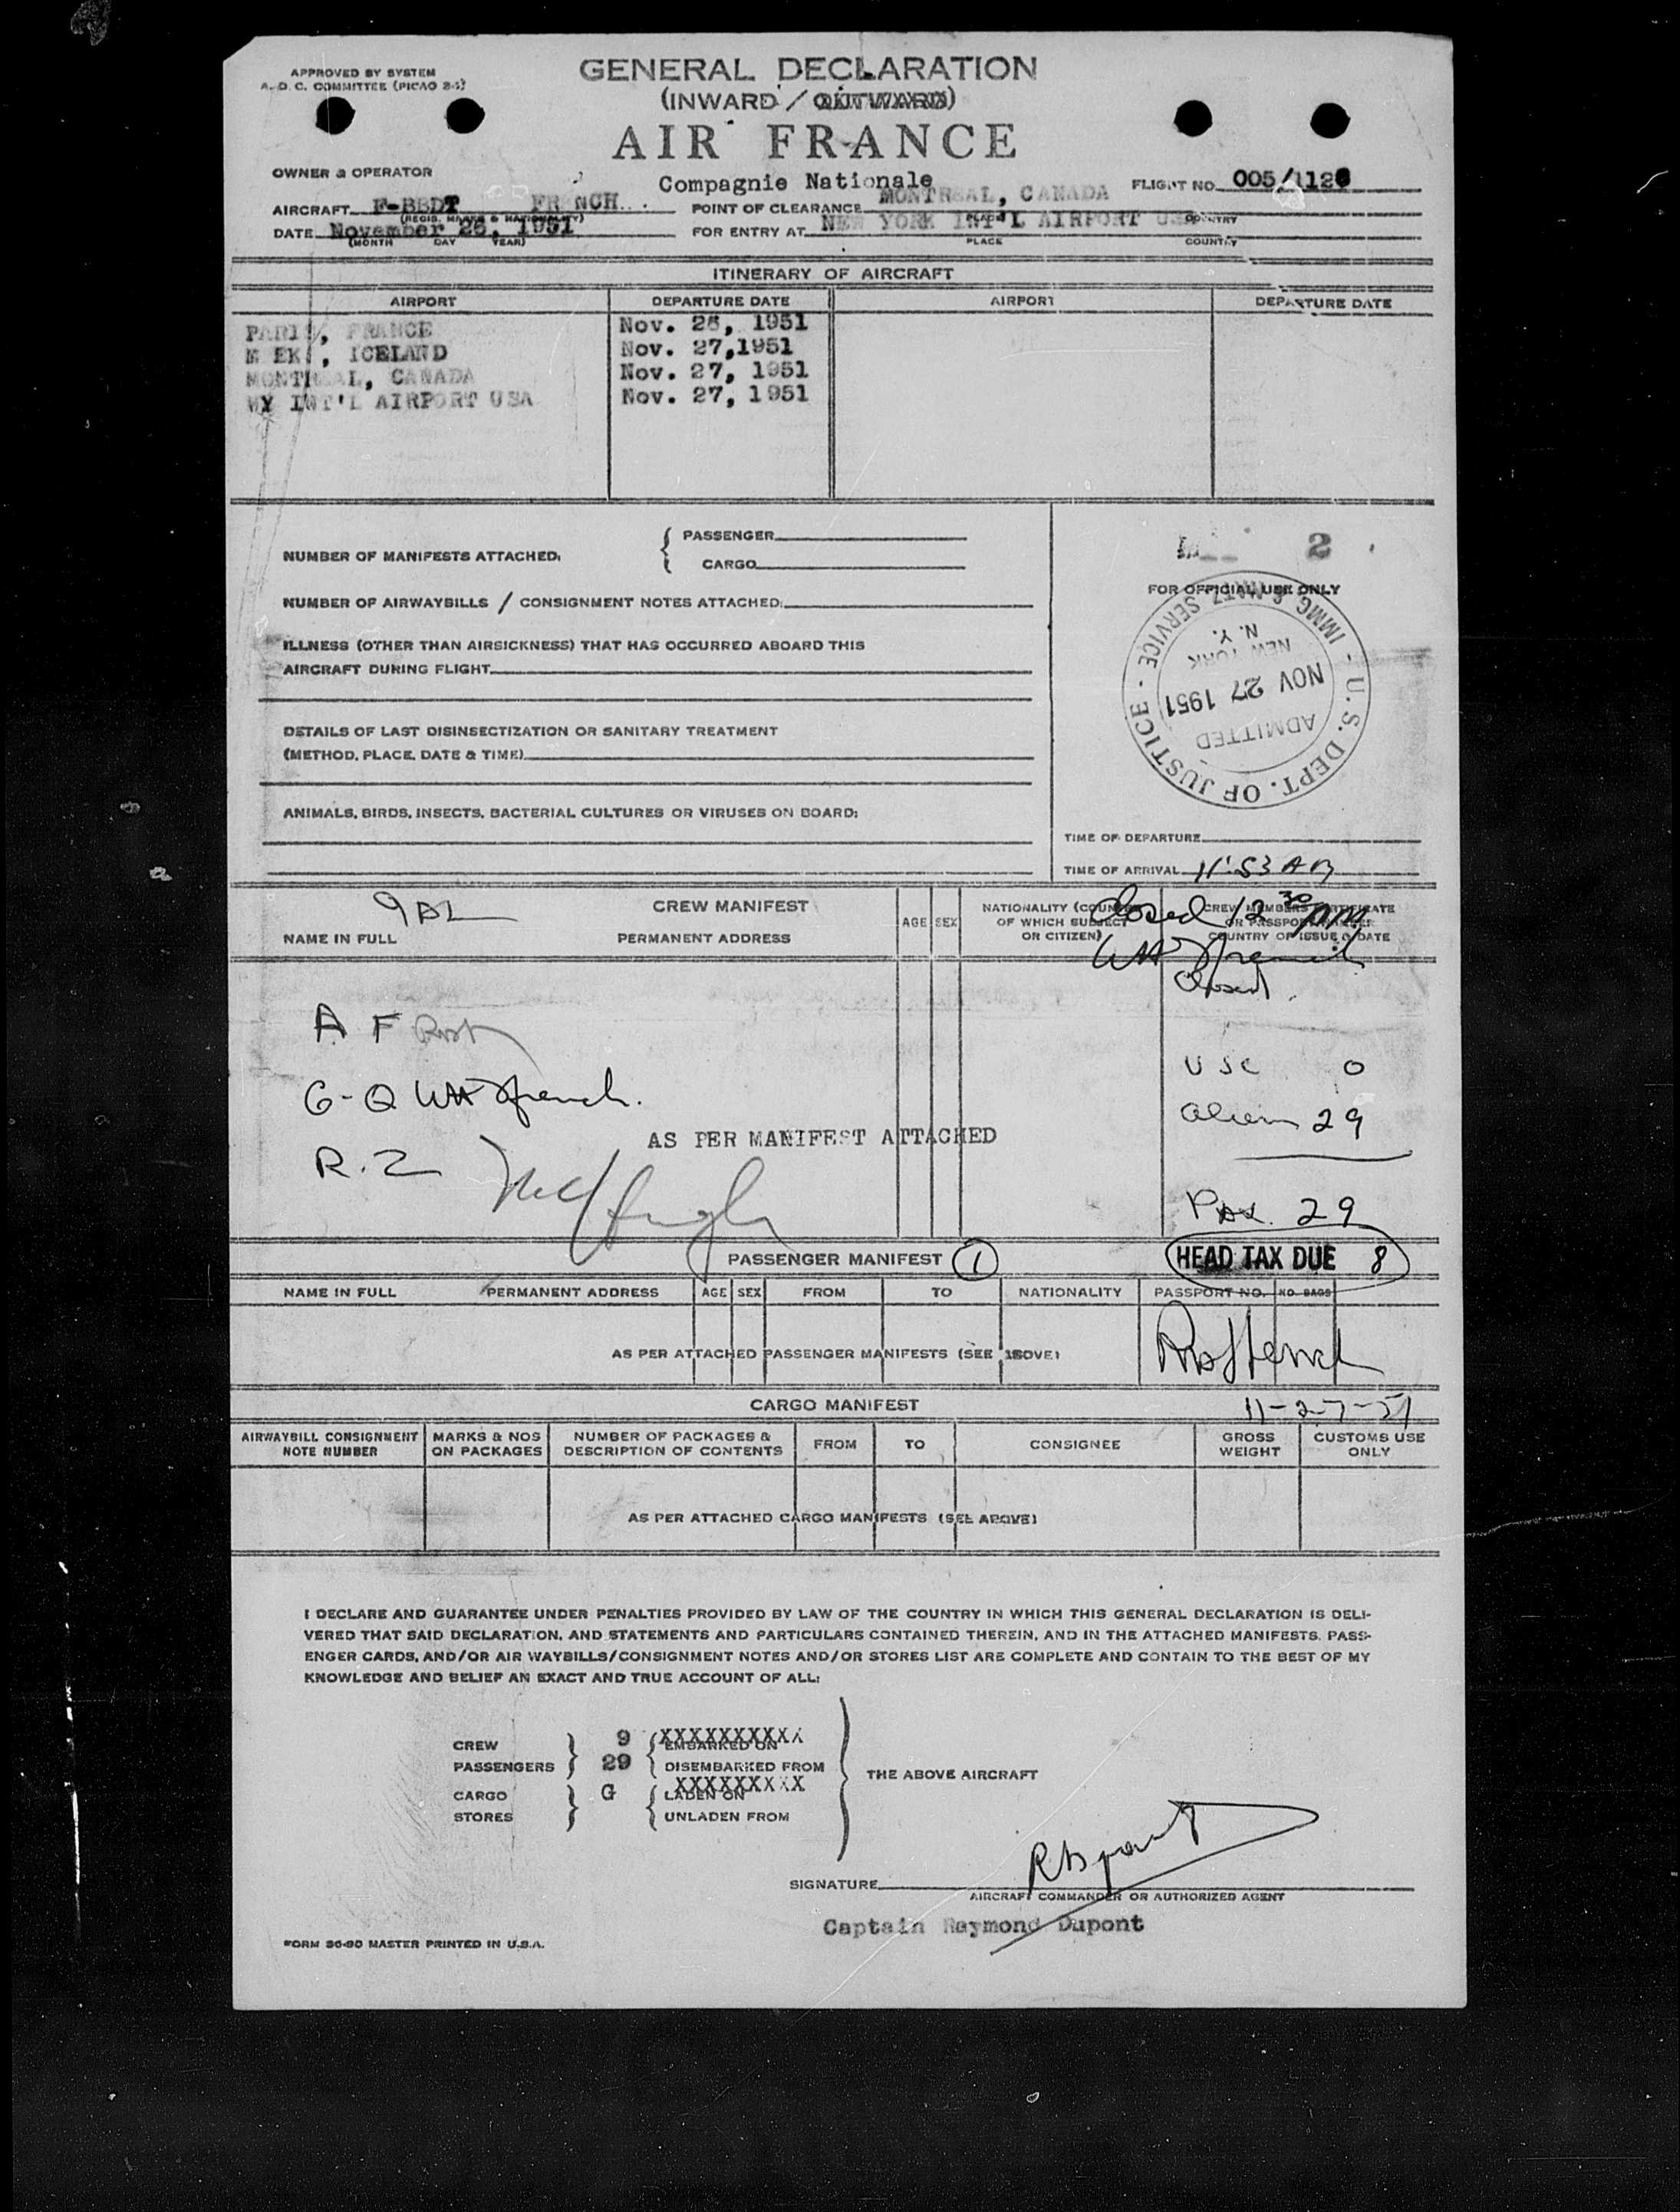 APPROVED BY SYSTEM
A. D. C. COMMITTEE (PICAO 2-1)
GENERAL DECLARATION
(INWARD / OUTWARD)
AIR FRANCE
Compagnie Nationale
OWNER & OPERATOR
FLIGHT NO. 005/1126
AIRCRAFT F-BBDT FRENCH
(REGIS. MARKS & NATIONALITY)
POINT OF CLEARANCE MONTREAL, CANADA
PLACE COUNTRY
DATE November 26, 1951
(MONTH DAY YEAR)
FOR ENTRY AT NEW YORK INT'L AIRPORT USA
PLACE COUNTRY
ITINERARY OF AIRCRAFT
AIRPORT DEPARTURE DATE AIRPORT DEPARTURE DATE
PARIS, FRANCE Nov. 26, 1951
MEEKS, ICELAND Nov. 27,1951
MONTREAL, CANADA Nov. 27, 1951
NY INT'L AIRPORT USA Nov. 27, 1951
NUMBER OF MANIFESTS ATTACHED: PASSENGER
CARGO
2
FOR OFFICIAL USE ONLY
NUMBER OF AIRWAYBILLS / CONSIGNMENT NOTES ATTACHED:
ILLNESS (OTHER THAN AIRSICKNESS) THAT HAS OCCURRED ABOARD THIS
AIRCRAFT DURING FLIGHT
U. S. DEPT. OF JUSTICE - IMMG & NATZ SERVICE -
ADMITTED
NOV 27 1951
NEW YORK
N. Y.
DETAILS OF LAST DISINSECTIZATION OR SANITARY TREATMENT
(METHOD, PLACE, DATE & TIME)
ANIMALS, BIRDS, INSECTS, BACTERIAL CULTURES OR VIRUSES ON BOARD:
TIME OF DEPARTURE
TIME OF ARRIVAL 11:53 AM
CREW MANIFEST
NAME IN FULL PERMANENT ADDRESS AGE SEX
NATIONALITY (COUNTRY
OF WHICH SUBJECT
OR CITIZEN)
CREW MEMBERS CERTIFICATE
OR PASSPORT NUMBER
COUNTRY OF ISSUE & DATE
Closed 12 30 pm
WH French
Closed
A F
G-Q WH French.
R.Z
USC 0
Alien 29
AS PER MANIFEST ATTACHED
Pax. 29
PASSENGER MANIFEST 1
HEAD TAX DUE 8
NAME IN FULL PERMANENT ADDRESS AGE SEX FROM TO NATIONALITY PASSPORT NO. NO. BAGS
AS PER ATTACHED PASSENGER MANIFESTS (SEE ABOVE)
CARGO MANIFEST
11-27-51
AIRWAYBILL CONSIGNMENT
NOTE NUMBER
MARKS & NOS
ON PACKAGES
NUMBER OF PACKAGES &
DESCRIPTION OF CONTENTS
FROM TO CONSIGNEE
GROSS
WEIGHT
CUSTOMS USE
ONLY
AS PER ATTACHED CARGO MANIFESTS (SEE ABOVE)
I DECLARE AND GUARANTEE UNDER PENALTIES PROVIDED BY LAW OF THE COUNTRY IN WHICH THIS GENERAL DECLARATION IS DELI-
VERED THAT SAID DECLARATION, AND STATEMENTS AND PARTICULARS CONTAINED THEREIN, AND IN THE ATTACHED MANIFESTS, PASS-
ENGER CARDS, AND/OR AIR WAYBILLS/CONSIGNMENT NOTES AND/OR STORES LIST ARE COMPLETE AND CONTAIN TO THE BEST OF MY
KNOWLEDGE AND BELIEF AN EXACT AND TRUE ACCOUNT OF ALL:
CREW 9 XXXXXXXXXX EMBARKED ON
PASSENGERS 29 DISEMBARKED FROM
THE ABOVE AIRCRAFT
CARGO G XXXXXXXXX LADEN ON
STORES UNLADEN FROM
SIGNATURE RDupont
AIRCRAFT COMMANDER OR AUTHORIZED AGENT
Captain Raymond Dupont
FORM 36-90 MASTER PRINTED IN U.S.A.